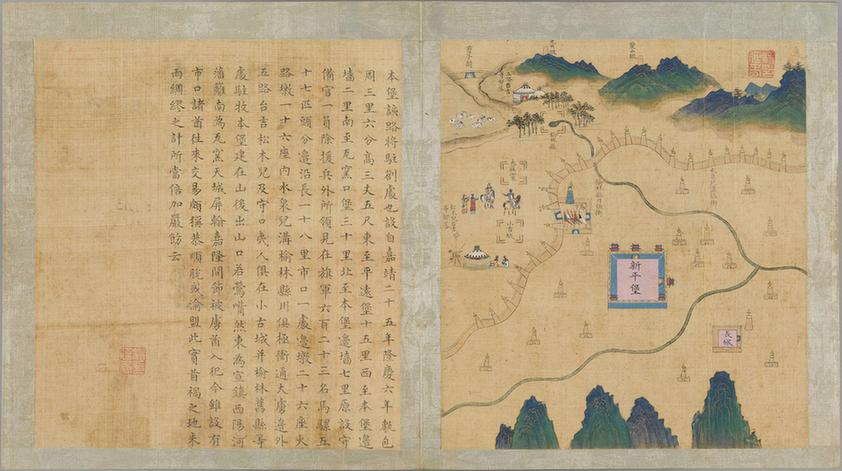 本堡該路將駐劄處也設自嘉靖二十五年隆慶六年甎包
周三里六分高三丈五尺東至平遠堡十五里西至本堡邊
墻二里南至瓦窯口堡三十里北至本堡邊墻七里原設守
備官一員除援兵外所領見在旗軍六百二十三名馬騾五
十七匹頭分邊沿長一十八里市口一處邊墩二十六座火
路墩一十六座內水泉兒溝榆林縣川俱極衝通大虜邊外
五路台吉松木兒及守口夷人俱在小古城并榆林舊縣等
處駐牧本堡建在山後出山口若鶯嘴然東為宣鎮西陽河
藩籬南為瓦窯天城屏翰嘉隆間節被虜酋入犯今雖設有
市口諸酋往來交易頗稱恭順脫或渝盟此實首禍之地未
雨綢繆之計所當倍加嚴飭云
新平堡
長城
小古城